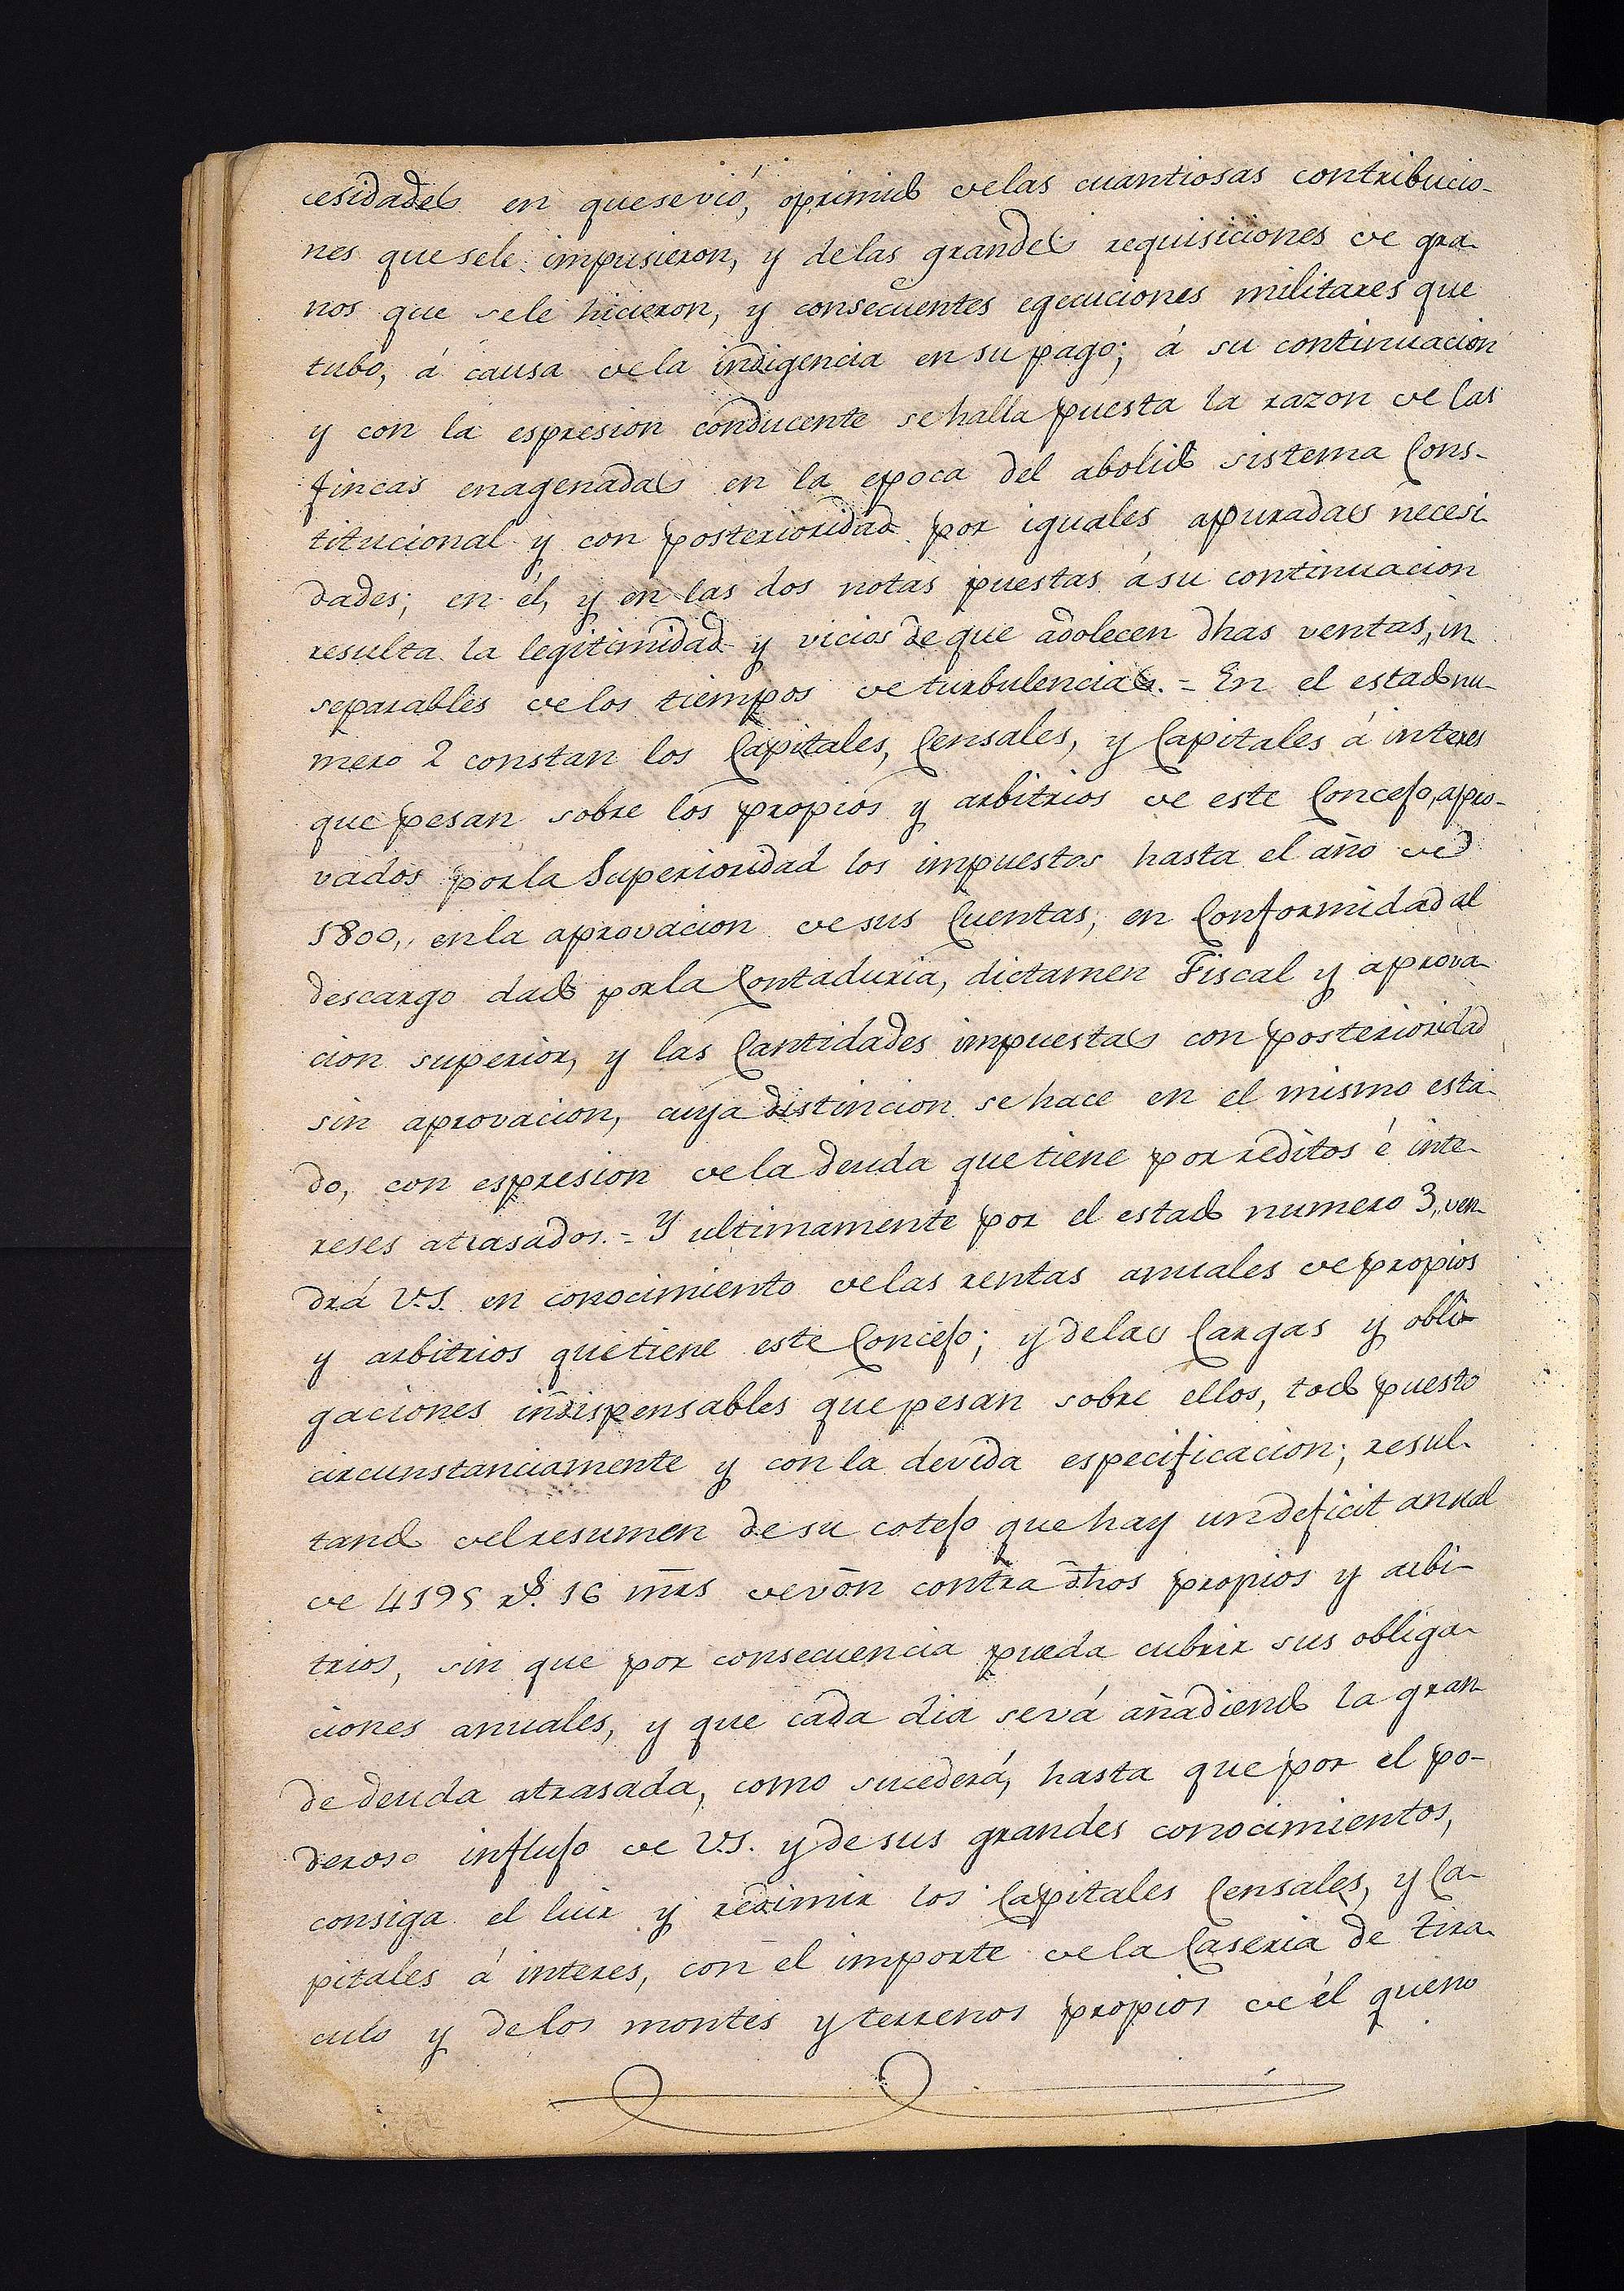 cesidades en quesevió, oprimido delas cuantiosas contribucio-
nes que sele impusieron, y delas grandes requisiciones de gra-
nos que sele hicieron, y consecuentes egecuciones militares que
tubo, á causa dela indigencia en su pago; á su continuacion
y con la espresion conducente se halla puesta la razon de las
fincas enagenadas en la epoca del abolido sistema Cons-
titucional y con posterioridad por iguales apuradas necesi-
dades; en él, y en las dos notas puestas á su continuacion
resulta la legitimidad y vicios de que adolecen dhas ventas, in
separables de los tiempos de turbulencias. = En el estado nu-
mero 2 constan los Capitales, Censales, y Capitales á interes
que pesan sobre los propios y arbitrios de este Concejo, apro-
vados por la Superioridad los impuestos hasta el año de
1800,, en la aprovacion de sus Cuentas, en Conformidad al
descargo dado por la Contaduria, dictamen Fiscal y aprova-
cion superior, y las Cantidades impuestas con posterioridad
sin aprovacion, cuya distincion se hace en el mismo esta-
do, con espresion dela deuda que tiene por reditos é inte-
reses atrasados. = Y ultimamente por el estado numero 3,, ven-
drá V.S. en conocimiento delas rentas anuales de propios
y arbitrios que tiene este Concejo; y delas Cargas y obli-
gaciones indispensables que pesan sobre ellos, todo puesto
circunstanciamente y con la devida especificacion; resul-
tando del resumen de su cotejo que hay un deficit annal
de 4195 rs. 16 mrs de von contra dhos propios y arbi-
trios, sin que por consecuencia pueda cubrir sus obliga-
ciones anuales, y que cada dia se vá añadiendo la gran-
de deuda atrasada, como sucederá, hasta que por el po-
deroso influjo de V.S. y de sus grandes conocimientos,
consiga el luir y redimir los Capitales Censales, y Ca-
pitales á interes, con el importe de la Caseria de Tira-
culo y de los montes y terrenos propios de él que no